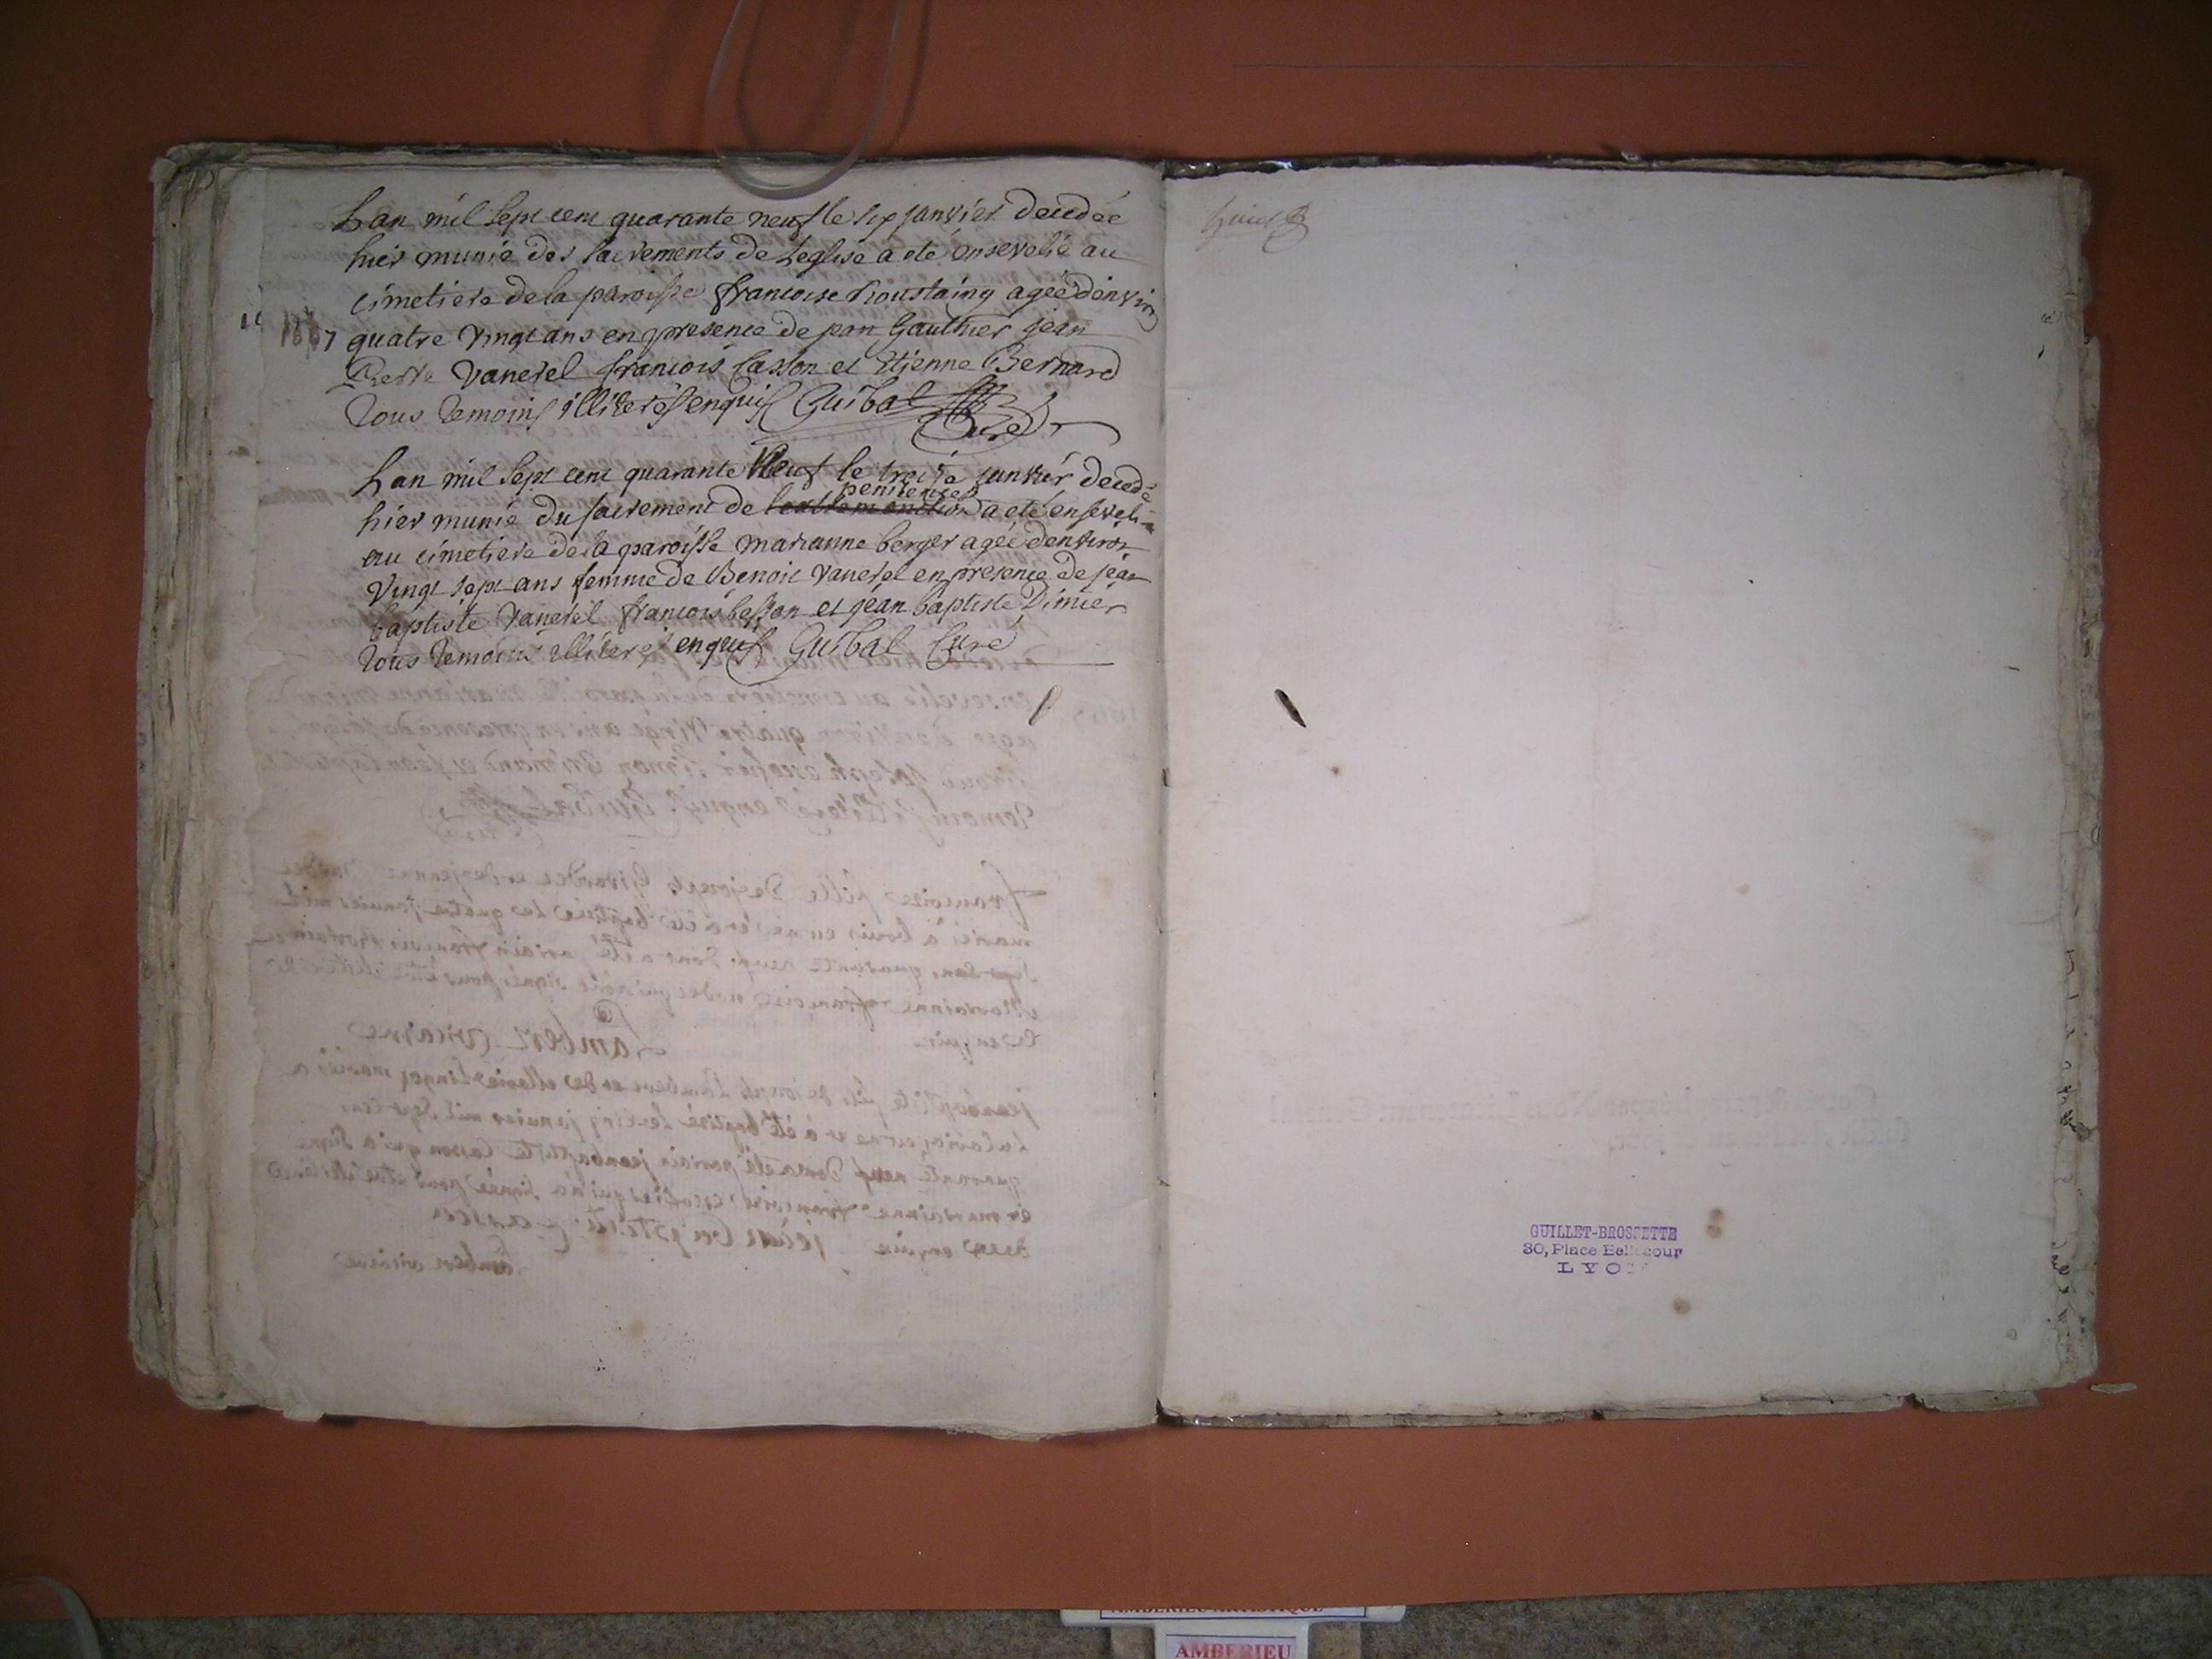 Lan mil sept cent quarante neuf le six janvier decedée
hier munie des sacrements de Leglise a eté ensevelie au
cimetiere de la paroisse francoise agée denviron
quatre vingt ans en presence de jean Gauthier jean
vanerel francois Casson et Etjenne Bernard
tous temoins illiterés enquis Guibal
Curé
Lan mil sept cent quarante Neuf le janvier decedé
penitence
hier munie du sacrement de lextremonction a eté ensevelie
au cimetiere de la paroisse marianne berger agée denviron
vingt sept ans femme de Benoit vanerel en presence de jean
baptiste vanerel francois besson et jean baptiste Dimier
tous temoins illiterés enquis Guibal Curé
GUILLET-BROSSETTE
30, Place Bellecour
LYON
AMBERIEU ARTISTIQUE
AMBERIEU